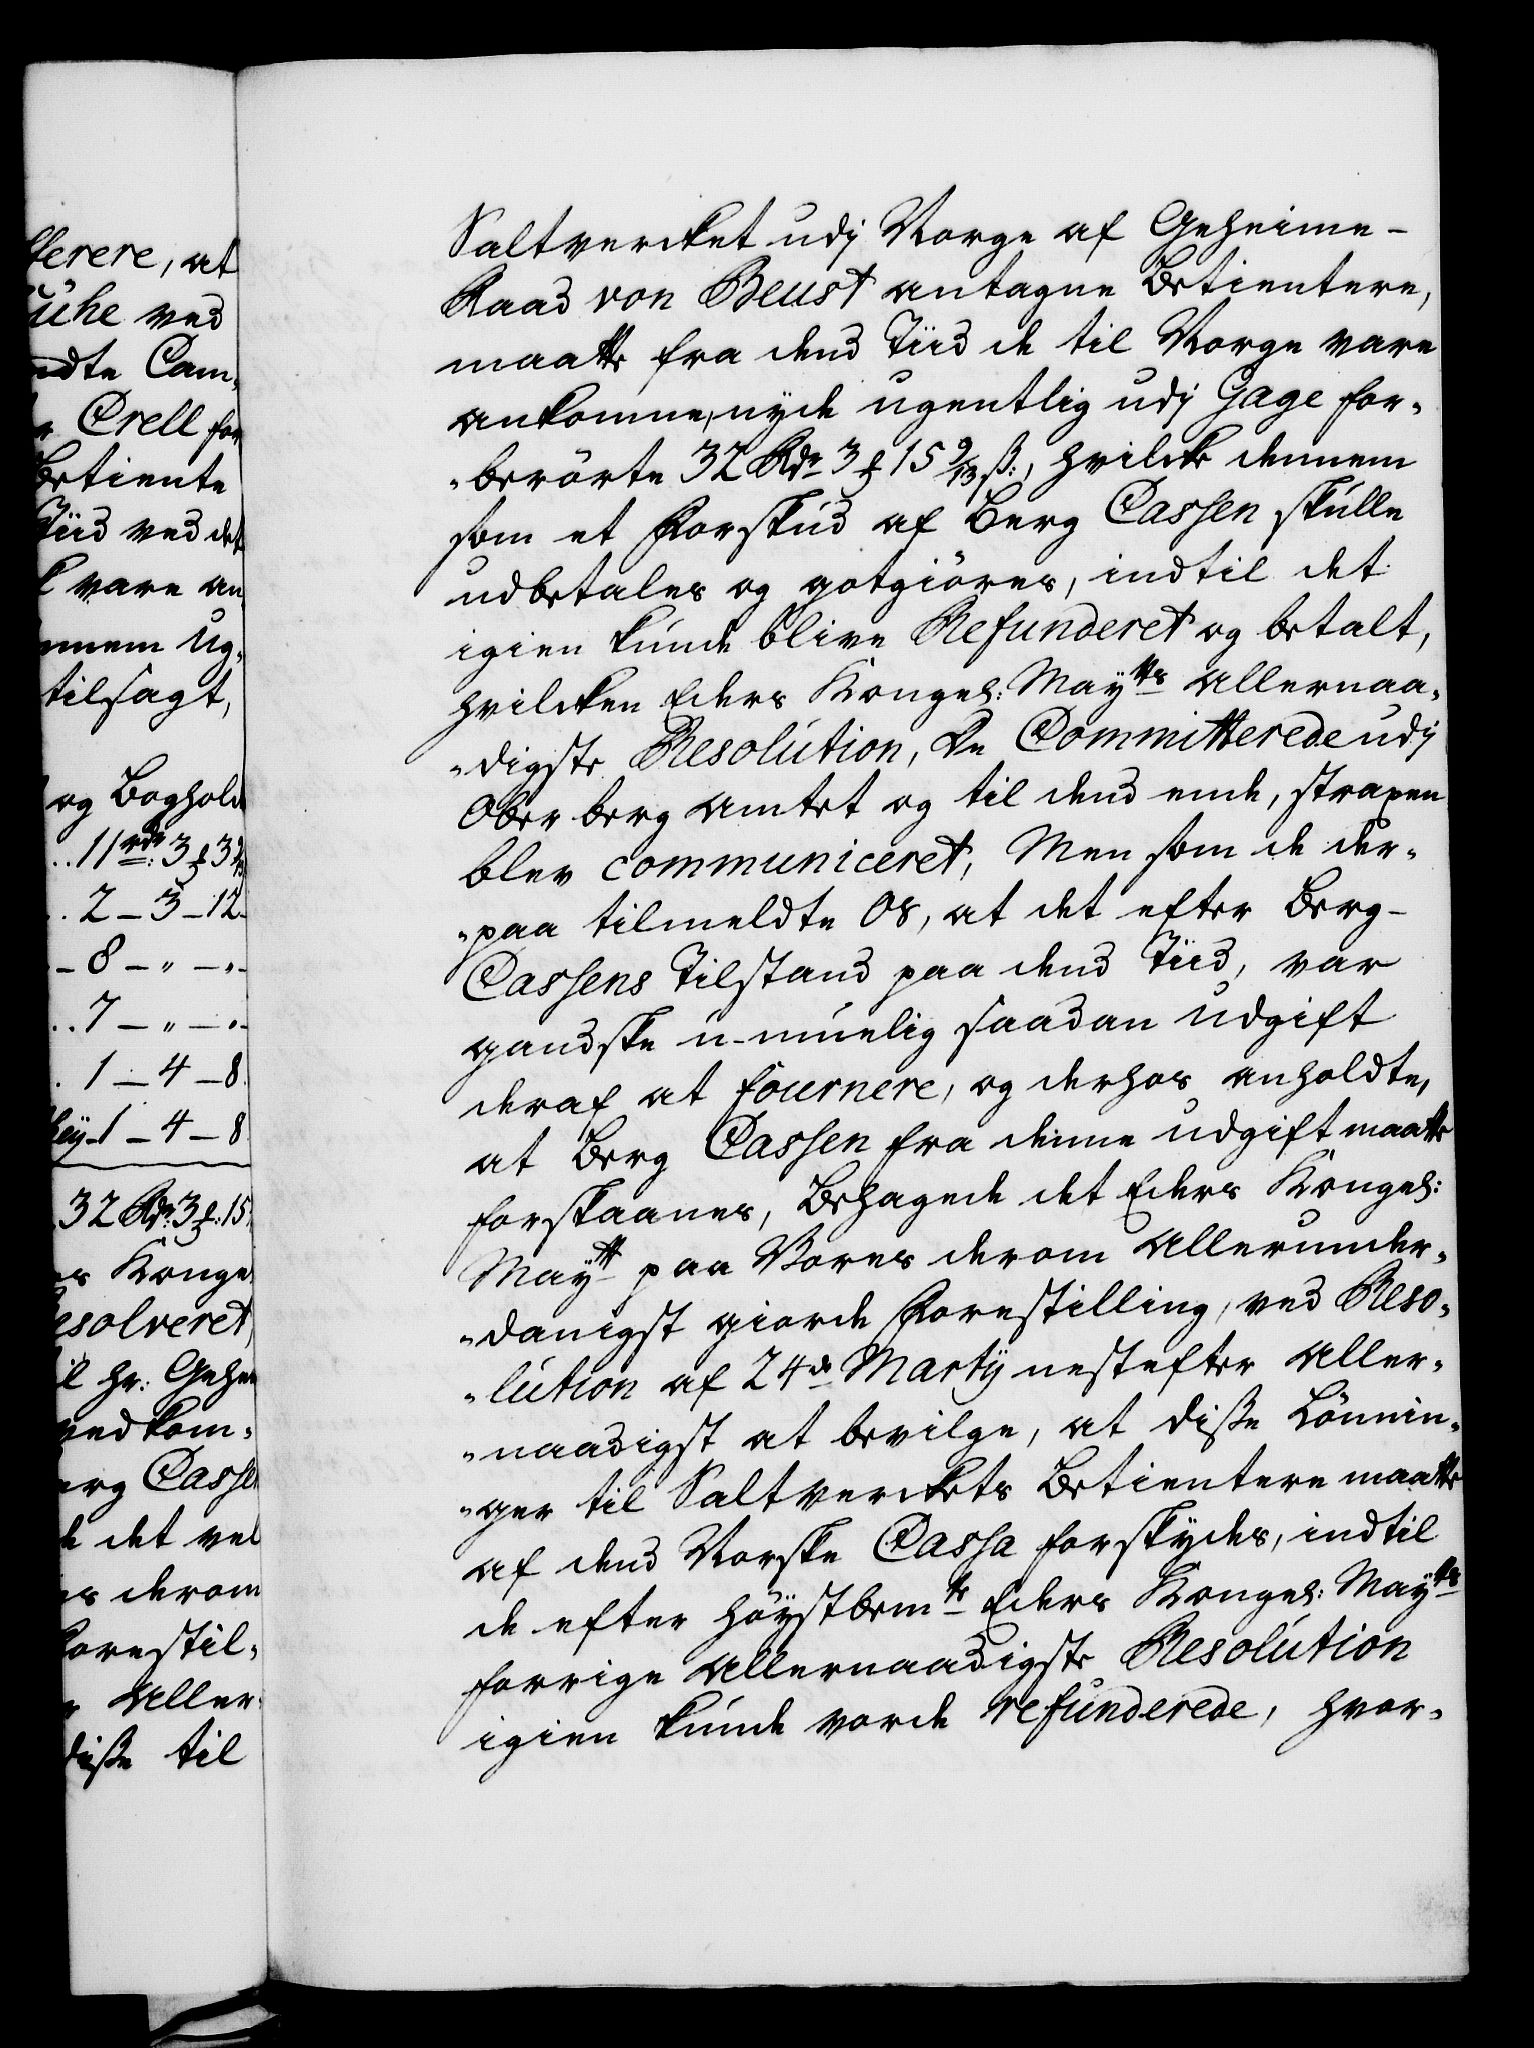 fferere, at
ühe ved
ndte Cam„
r Crell for
Betiente
Tiid ved det
vare an„
nnem ug„
tilsagt,
og Bogholde
.. 11 rdr: 3 ƒ 3
.. 2 – 3 – 12
– 8 – „ – „
.. 7 – „ – „
. 1 – 4 – 8
1 – 4 – 8
32 Rdr 3 ƒ: 15
s Konge
esolveret,
il hr: Gehei
vedkom„
erg Casse
de det vel
es derom
Forestil„
Aller
diße til
Saltvercket udj Norge af Geheime-
Raad von Beust antagne Betientere,
maatte fra dend Tiid de til Norge vare
ankomne, nyde ugentlig udj Gage for„
„berörte 32 Rdr 3 ƒ 15 9/13 ß:, hvilcke dennem
som et Forskud af Berg Cassen skulle
udbetales og gotgiöres, indtil det
igien kunde blive Refunderet og betalt,
hvilcken Eders Kongel: Maytts Allernaa„
„digste Resolution, De Committerede udj
Ober berg Amtet og til dend ende, straxen
blev communiceret, Men som de der„
„paa tilmeldte Os, at det efter Berg-
Cassens Tilstand paa dend Tiid, var
gandske u-muelig saadan udgift
deraf at fournere, og derhos anholdte,
at Berg Cassen fra denne udgift maatte
forskaanes, Behagede det Eders Kongel:
Maytt paa Vores derom Allerunder„
„danigst giorde Forestilling, ved Reso„
„lution af 24de Martij nestefter Aller„
„naadigst at bevilge, at diße Lönnin„
„ger til Saltverckets Betientere maatte
af dend Norske Cassa forskydes, indtil
de efter höystbemte Eders Kongel: Maytts
forrige Allernaadigste Resolution
igien kunde vorde refunderede, hvor„